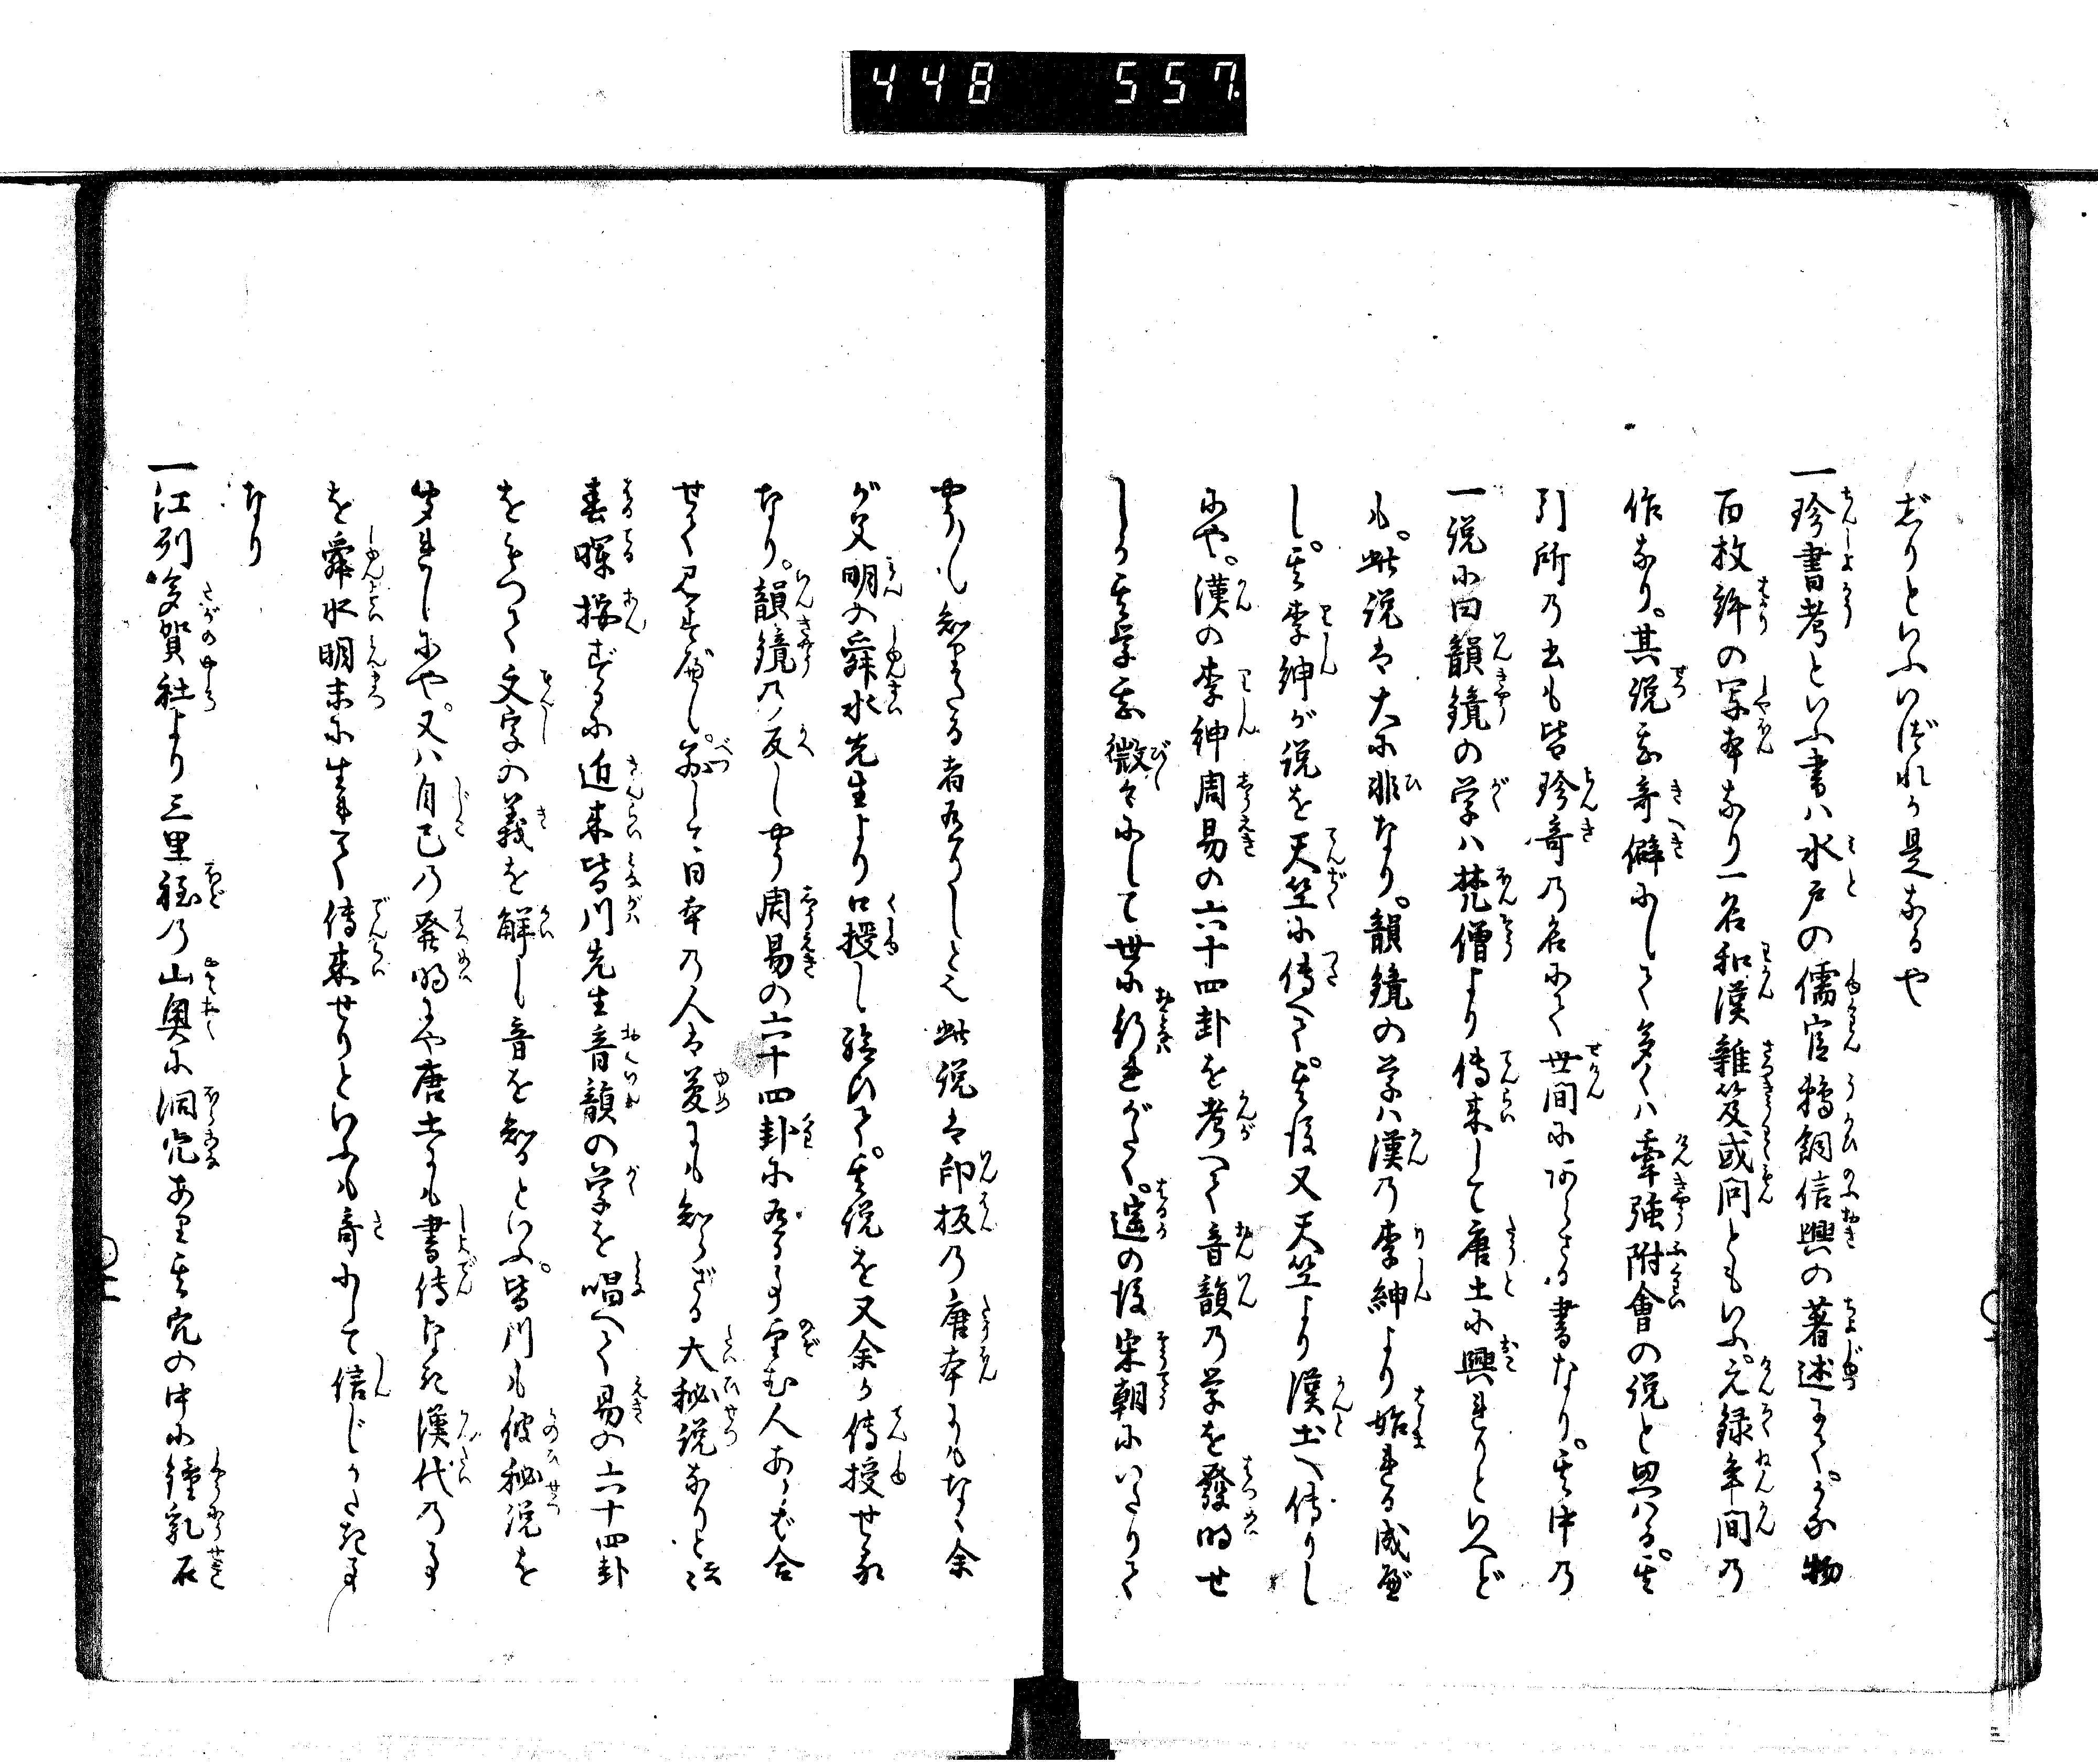 448 557.
どりといふいづれか是なるや
一珍書考といふ書ハ水戸の儒官鵜飼信興の著述にて、かな物
百枚許の写本なり一名和漢雑笈或問ともいふ。元録年間の
作なり。其説甚奇僻にして多くハ牽強附會の説と思ハる。其
引所の書も皆珍奇の名にて世間にあらざる書なり。其中の
一説に曰韻鏡の学ハ梵僧より傳来して唐土に興れりといへど
も。此説は大に非なり。韻鏡の学ハ漢の李紳より始れる成べ
し。其李紳が説を天竺に傳へて。其後又天竺より漢土へ傳りし
にや。漢の李紳周易の六十四卦を考へて音韻の学を發明せ
しか其学甚微々にして世に行れがたく。遥の後宋朝にいたりて
やうやく知りたる者有りしとぞ此説は印板の唐本にもなく余
が父明の舜水先生より口授し給ひて。其説を又余に傳授せる
なり。韻鏡の反しやう周易の六十四卦に有る事望む人あらば合
せて見すべし。然しく日本の人は夢にも知らざる大秘説なりと云々
春暉按ずるに近来皆川先生音韻の学を唱へて易の六十四卦
をもつて文字の義を解し音を知るといふ。皆川も彼秘説を
聞れしにや。又ハ自己の発明にや唐土にも書傳なき漢代の事
を舜水明末に生れて傳来せりといふも奇にして信じがたき事
なり
一江列多賀社より三里程の山奥に洞穴あり其穴の中に鐘乳石